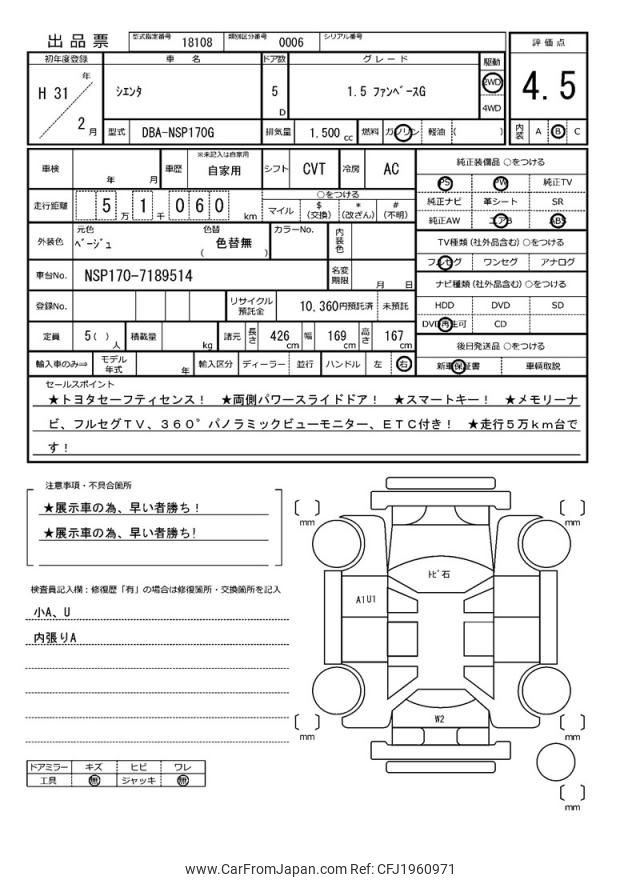 出品票 型式指定番号 18108 類別区分番号 0006 シリアル番号
評価点
4.5
内装 A B C
初年度登録 車名 ドア数 グレード 駆動
H 31 年 2 月 シエンタ 5 D 1.5 ファンベースG 2WD 4WD
型式 DBA-NSP170G 排気量 1.500 cc 燃料 ガソリン 軽油 ( )
車検 年 月 車歴 ※未記入は自家用 自家用 シフト CVT 冷房 AC
走行距離 5 万 1 千 0 6 0 km
○をつける
マイル $ (交換) * (改ざん) # (不明)
外装色 元色 ベージュ 色替 ( 色替無 ) カラーNo. 内装色
車台No. NSP170-7189514 名変期限 月 日
登録No. リサイクル預託金 10,360円預託済 未預託
定員 5( ) 人 積載量 kg 諸元 長さ 426 cm 幅 169 cm 高さ 167 cm
輸入車のみ⇒ モデル年式 年 輸入区分 ディーラー 並行 ハンドル 左 右
純正装備品 ○をつける
PS PW 純正TV
純正ナビ 革シート SR
純正AW エアB ABS
TV種類(社外品含む)○をつける
フルセグ ワンセグ アナログ
ナビ種類(社外品含む)○をつける
HDD DVD SD
DVD再生可 CD
後日発送品 ○をつける
新車保証書 車輌取説
セールスポイント
★トヨタセーフティセンス! ★両側パワースライドドア! ★スマートキー! ★メモリーナ
ビ、フルセグTV、360°パノラミックビューモニター、ETC付き! ★走行5万km台で
す!
注意事項・不具合箇所
★展示車の為、早い者勝ち!
★展示車の為、早い者勝ち!
検査員記入欄:修復歴「有」の場合は修復箇所・交換箇所を記入
小A、U
内張りA
ドアミラー キズ ヒビ ワレ
工具 無 ジャッキ 無
mm
mm
トビ石
A1U1
W2
mm
mm
mm
www.CarFromJapan.com Ref: CFJ1960971